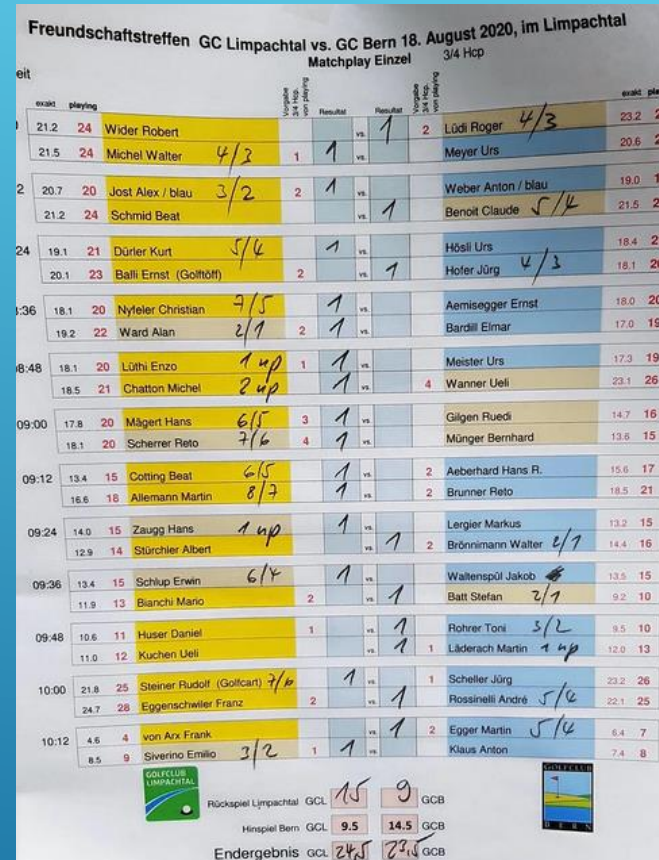 Freundschaftstreffen GC Limpachtal vs. GC Bern 18. August 2020, im Limpachtal
Matchplay Einzel 3/4 Hcp
eit
exakt playing Vorgabe 3/4 Hcp. von playing Resultat Resultat Vorgabe 3/4 Hcp. von playing exakt
21.2 24 Wider Robert vs. 1 2 Lüdi Roger 4/3 23.2
21.5 24 Michel Walter 4/3 1 1 vs. Meyer Urs 20.6
20.7 20 Jost Alex / blau 3/2 2 1 vs. Weber Anton / blau 19.0
21.2 24 Schmid Beat vs. 1 Benoit Claude 5/4 21.5
24 19.1 21 Dürler Kurt 5/4 1 vs. Hösli Urs 18.4
20.1 23 Balli Ernst (Golftöff) 2 vs. 1 Hofer Jürg 4/3 18.1
:36 18.1 20 Nyfeler Christian 7/5 1 vs. Aemisegger Ernst 18.0 20
19.2 22 Ward Alan 2/1 2 1 vs. Bardill Elmar 17.0 19
08:48 18.1 20 Lüthi Enzo 1 up 1 1 vs. Meister Urs 17.3 19
18.5 21 Chatton Michel 2 up 1 vs. 4 Wanner Ueli 23.1 26
09:00 17.8 20 Mägert Hans 6/5 3 1 vs. Gilgen Ruedi 14.7 16
18.1 20 Scherrer Reto 7/6 4 1 vs. Münger Bernhard 13.6 15
09:12 13.4 15 Cotting Beat 6/5 1 vs. 2 Aeberhard Hans R. 15.6 17
16.6 18 Allemann Martin 8/7 1 vs. 2 Brunner Reto 18.5 21
09:24 14.0 15 Zaugg Hans 1 up 1 vs. Lergier Markus 13.2 15
12.9 14 Stürchler Albert vs. 1 2 Brönnimann Walter 2/1 14.4 16
09:36 13.4 15 Schlup Erwin 6/4 1 vs. Waltenspül Jakob 13.5 15
11.9 13 Bianchi Mario 2 vs. 1 Batt Stefan 2/1 9.2 10
09:48 10.6 11 Huser Daniel 1 vs. 1 Rohrer Toni 3/2 9.5 10
11.0 12 Kuchen Ueli vs. 1 1 Läderach Martin 1 up 12.0 13
10:00 21.8 25 Steiner Rudolf (Golfcart) 7/6 1 vs. 1 Scheller Jürg 23.2 26
24.7 28 Eggenschwiler Franz 2 vs. 1 Rossinelli André 5/4 22.1 25
10:12 4.6 4 von Arx Frank vs. 1 2 Egger Martin 5/4 6.4 7
8.5 9 Siverino Emilio 3/2 1 1 vs. Klaus Anton 7.4 8
GOLFCLUB LIMPACHTAL
GOLFCLUB BERN
Rückspiel Limpachtal GCL 15 9 GCB
Hinspiel Bern GCL 9.5 14.5 GCB
Endergebnis GCL 24,5 23,5 GCB